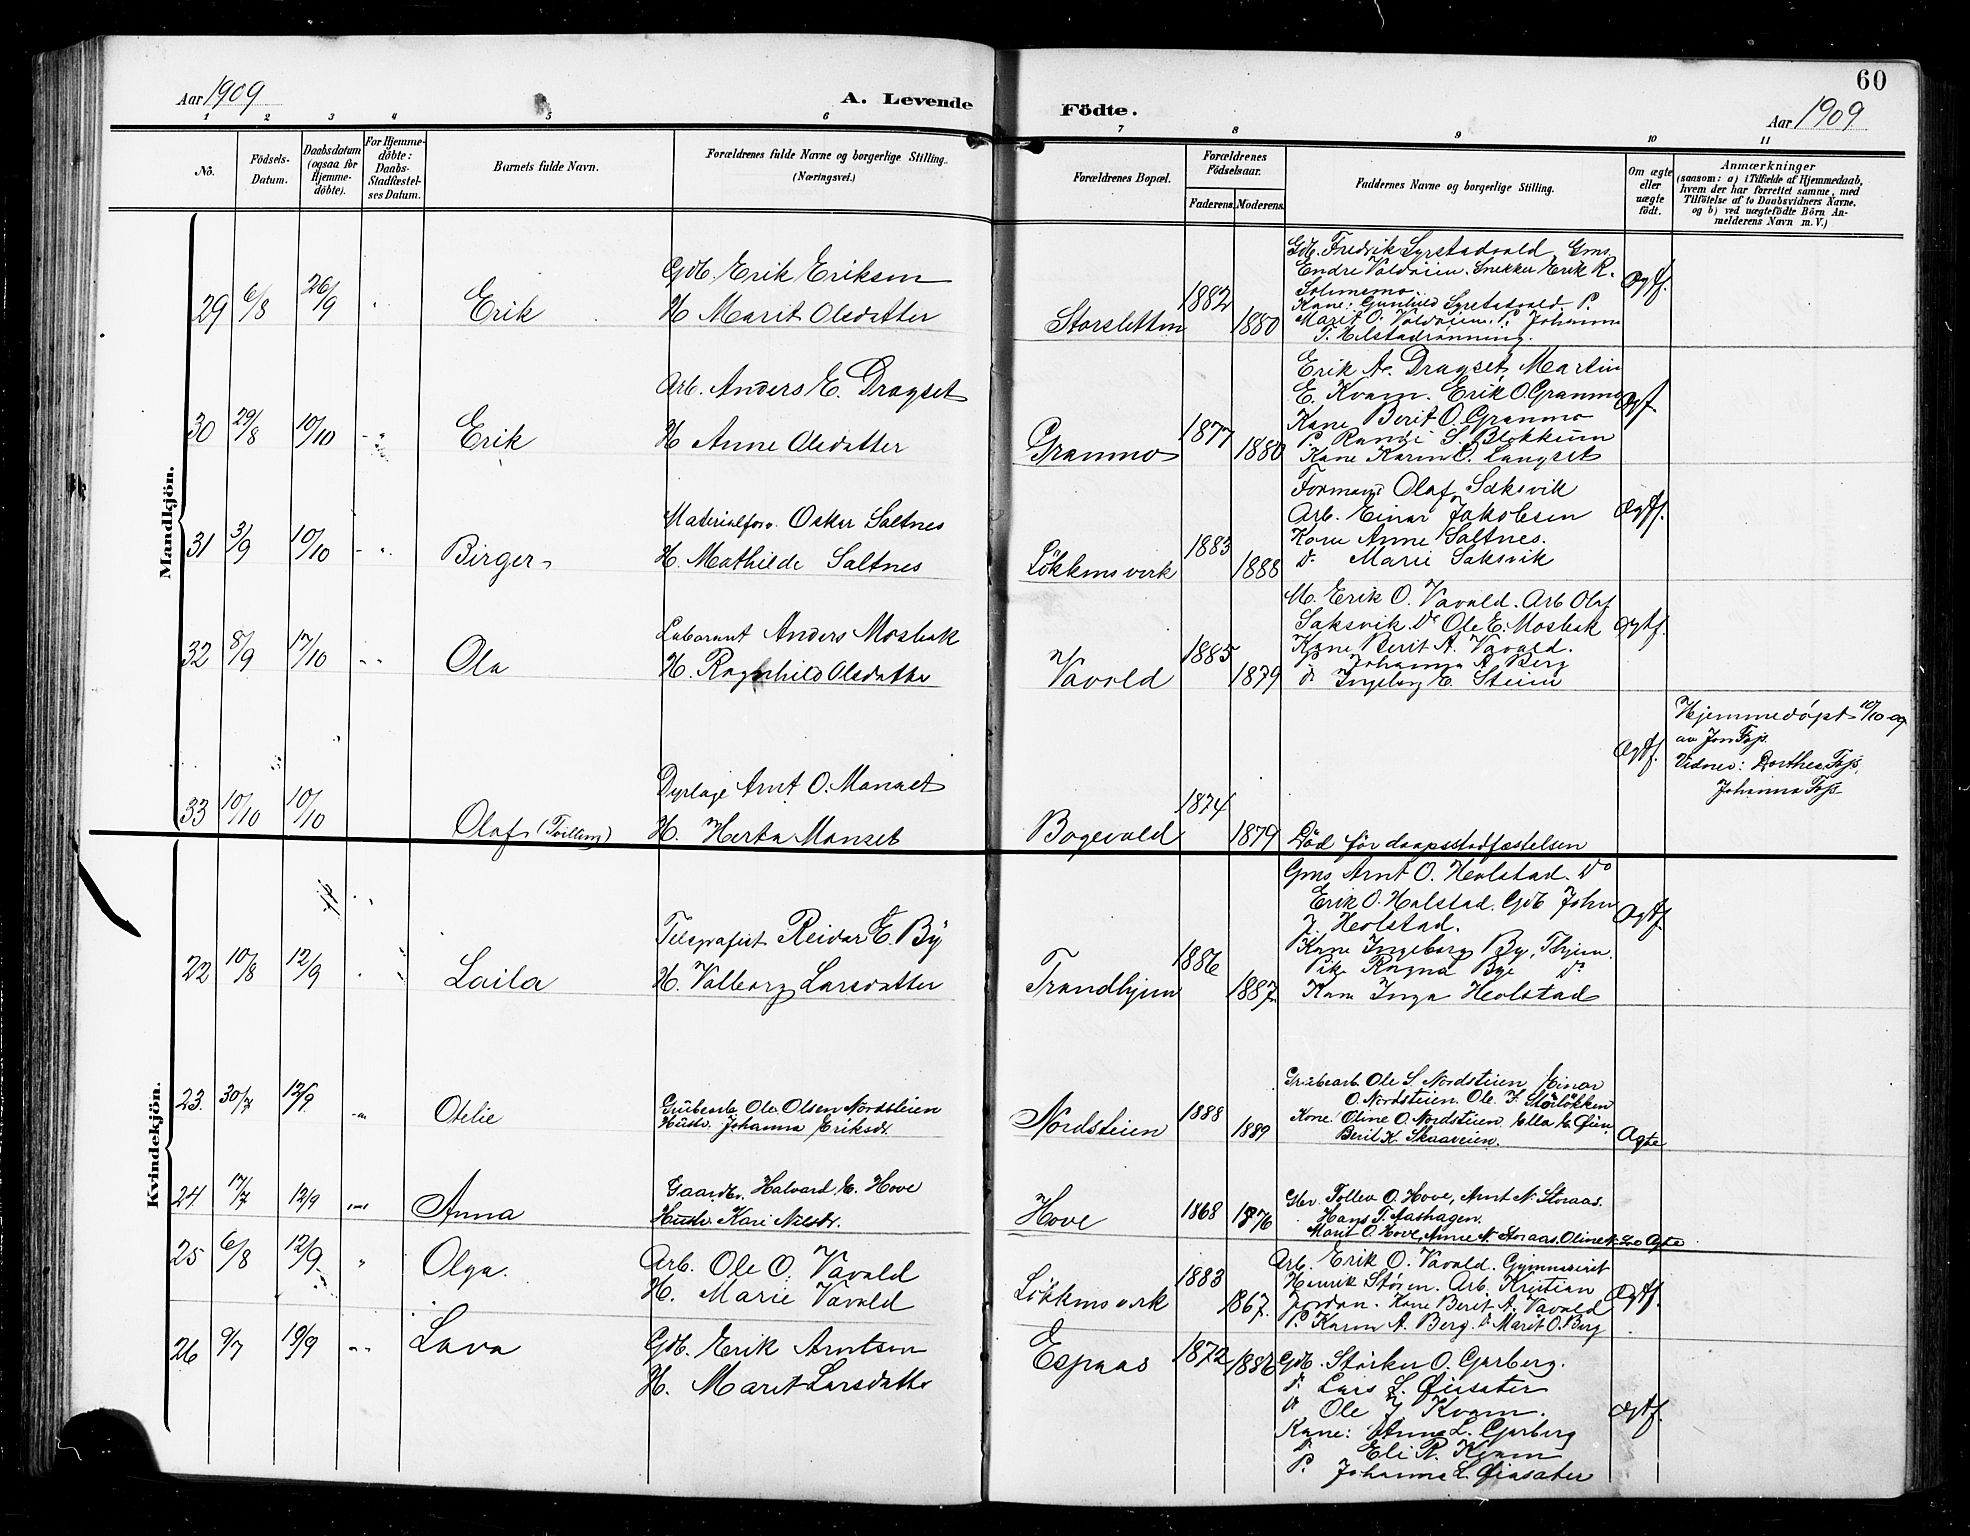 60
Aar 1909
A. Levende
Födte.
Aar 1909
1 2 3 4 5 6 7 8 9 10 11
No.
Födsels-
Datum.
Daabsdatum
(ogsaa for
Hjemme-
döbte).
For Hjemme-
döbte:
Daabs-
Stadfæstel-
ses Datum.
Barnets fulde Navn.
Forældrenes fulde Navne og borgerlige Stilling.
(Næringsvei.)
Forældrenes Bopæl.
Forældrenes
Födselsaar.
Faderens.
Moderens.
Faddernes Navne og borgerlige Stilling.
Om ægte
eller
uægte
födt.
Anmærkninger
(saasom: a) i Tilfælde af Hjemmedaab,
hvem der har forrettet samme, med
Tilföielse af to Daabsvidners Navne,
og b) ved uægtefödte Börn An-
melderens Navn m. V.)
Mandkjön.
29 6/8 26/9 "
Erik
Gdb. Erik Eriksen
H. Marit Olsdatter
Storsletten
1882
1880
Gdb. Fredrik Syrstadvold Gms.
Endre Voldøien. Snekker Erik R.
Solmemo.
Kone: Gunhild Syrstadvold P.
Marit O. Voldøien. P. Johanna
T. Helstadrønning.
Ægtf.
30 29/8 10/10 - " -
Erik
Arb. Anders E. Dragset
H Anne Olsdatter
Granmo
1877
1880
Erik A. Dragset, Martin
E. Kvam. Erik O. Granmo
Kone Berit O. Granmo
P. Randi S. Blokkum
Kone Karen O. Langset
Ægtf
31 3/9 10/10 - " -
Birger
Materialforv. Oskar Saltnes
H. Mathilde Saltnes
Løkkens verk
1883
1888
Formand Olaf Saksvik
Arb. Einar Jakobsen
Kone Anne Saltnes.
do Marie Saksvik
Ægtf.
32 8/9 17/10 - " -
Ola
Laborant Anders Mosbak
H. Ragnhild Olsdatter
Vavold
1885
1879
M. Erik O. Vavold. Arb Olaf
Saksvik. do Ole E. Mosbak
Kone Berit A. Vavold.
P. Johanna A. Berg
do Ingeborg E. Steien
Ægtf.
33 10/10 10/10
Olaf (Tvilling)
Dyrlæge Arnt O. Manset
H. Herta Manset
Bogevold
1874
1879
Död för daapsstadfæstelsen
Ægtf.
Hjemmedøpt 10/10 09
av Jon Fajs.
Vidner: Dorthea Fajs,
Johanna Fajs
Kvindekjön.
22 10/8 12/9
Laila
Telegrafist Reidar E. By
H. Valborg Larsdatter
Trondhjem
1886
1887.
Gms Arnt O. Holstad. do
Erik O. Holstad. Gdb John
J. Holstad.
Kone Ingeborg By, Thjem.
Pike Ragna Bye do
Kone Inga Holstad
Ægtf.
23. 30/7 12/9 - " -
Otelie
Grubearb. Ole Olsen Nordsteien
Hustr. Johanna Eriksdr.
Nordsteien
1888
1889
Grubearb. Ole S. Nordsteien Einar
O. Nordsteien. Ole J. Storløkken
Kone: Oline O. Nordsteien, Ella E. Øien,
Berit K. Skaaveien.
Ægte
24 17/7 12/9 - " -
Anna
Gaardbr. Halvard E. Hove
Hustr. Kari Nilsdr.
Hove
1868 1876
Gbr Tollev O. Hove, Arnt N. Storaas.
Hans T. Aashagen.
Marit O. Hove, Anne N. Storaas, Oline N. Loe Ægte
25 6/8 12/9 "
Olga.
Arb. Ole O. Vavold
H. Marie Vavold
Løkkens verk
1883
1867.
Arb. Erik O. Vavold. Gymnasiast
Henrik Støren. Arb. Kristian
Jordan. Kone Berit A. Vavold
P. Karen A. Berg. do Marit O. Berg
Ægtf.
26 9/7 19/9 - " -
Lava
Gdb. Erik Arntsen
H. Marit Larsdatter
Espaas
1872
1886
Gdb. Størker O. Garberg.
do Lars L. Øiasæter
do Ole J. Kvam.
Kone: Anna L. Garberg
do Eli R. Kvam
P. Johanna L. Øiasæter
Ægtf.